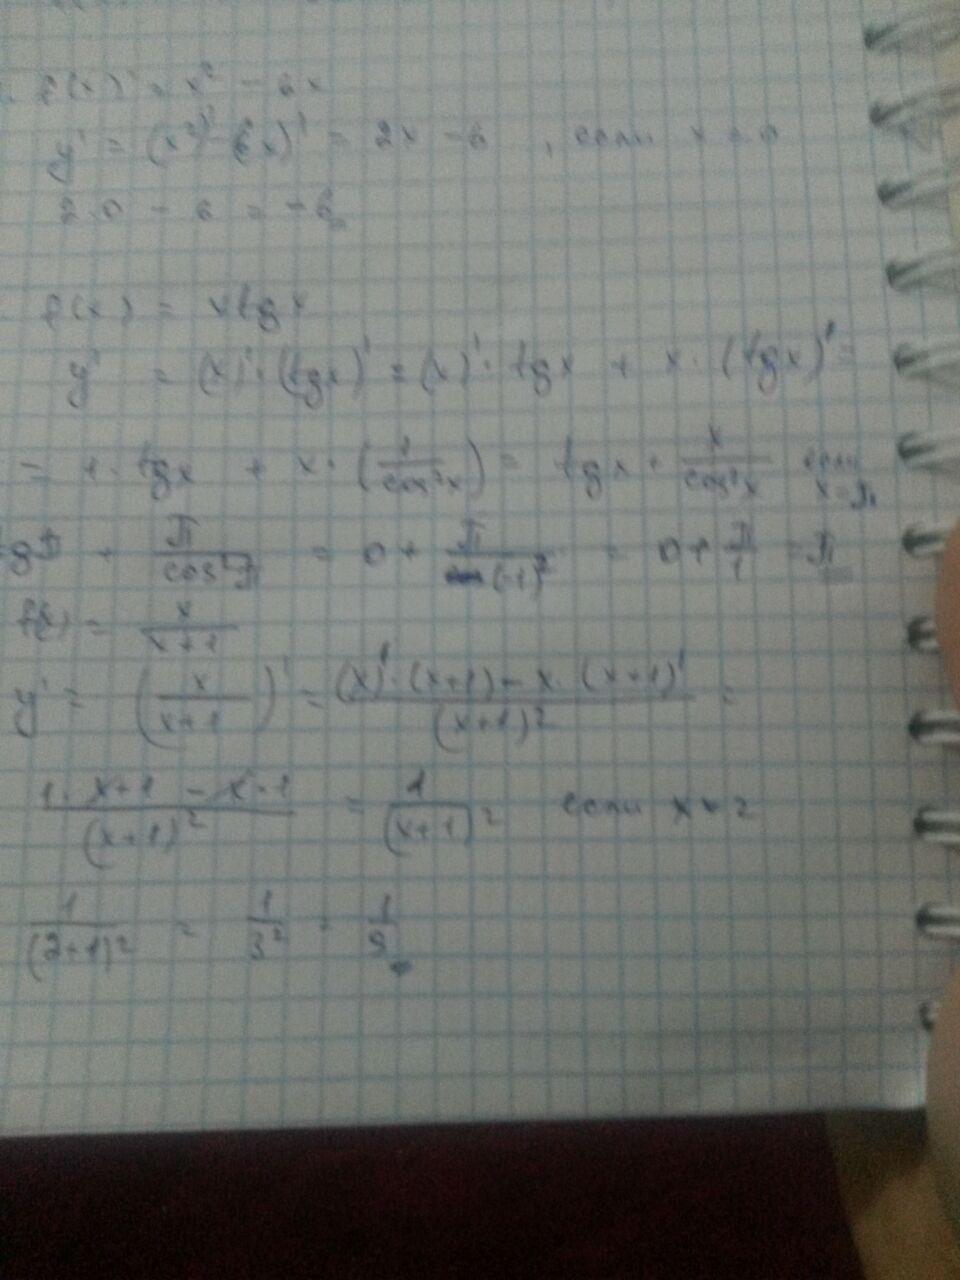 f(x) = x² - 6x
y' = (x²)' - 6x)' = 2x - 6 , если x = 0
2·0 - 6 = -6
f(x) = x tg x
y' = (x)'·(tgx)' = (x)'·tgx + x·(tgx)' =
= 1·tgx + x·(1/cos²x) = tgx + x/cos²x если x=π
tgπ + π/cos²π = 0 + π/(-1)² = 0 + π/1 = π
f(x) = x/(x+1)
y' = (x/(x+1))' = ((x)'·(x+1) - x·(x+1)')/(x+1)² =
(1·x+1 - x·1)/(x+1)² = 1/(x+1)² если x = 2
1/(2+1)² = 1/3² = 1/9